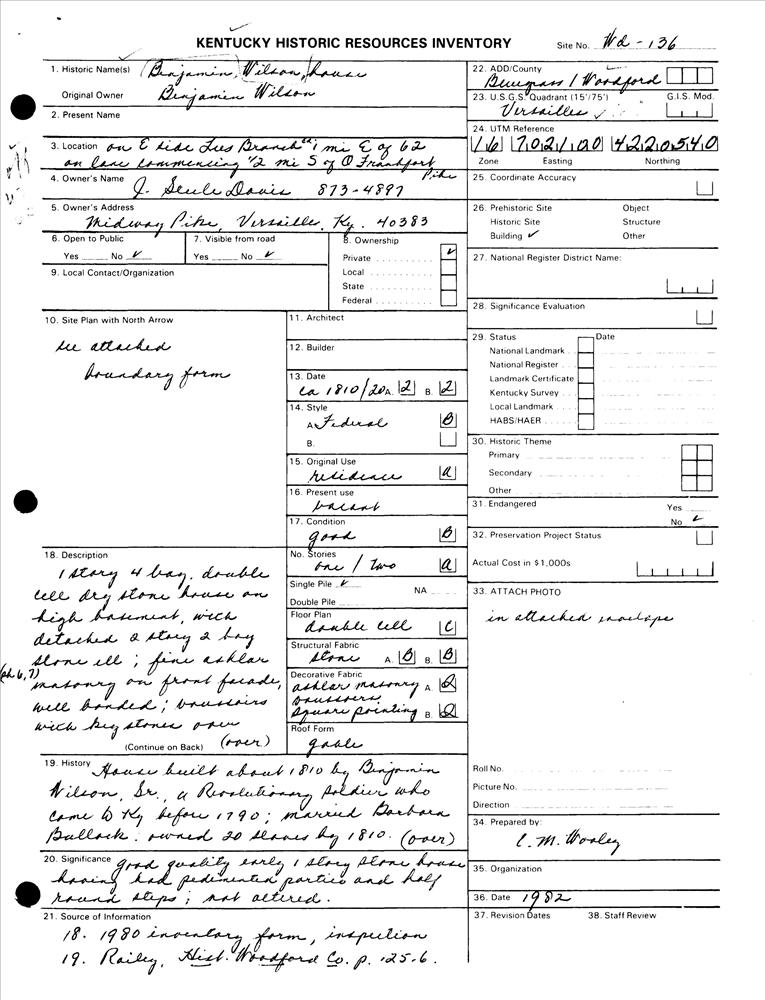 KENTUCKY HISTORIC RESOURCES INVENTORY
Site No. Wd-136
1. Historic Name(s) (Benjamin, Wilson, house
Original Owner Benjamin Wilson
2. Present Name
3. Location on E side Lees Branch 1 mi E of 62
on lane commencing 1/2 mi S of O Frankfort Pike
4. Owner's Name J. Seule Davis 873-4897
5. Owner's Address
Midway Pike, Versailles, Ky. 40383
6. Open to Public
Yes No ✓
7. Visible from road
Yes No ✓
8. Ownership
Private ✓
Local
State
Federal
9. Local Contact/Organization
10. Site Plan with North Arrow
see attached
boundary form
11. Architect
12. Builder
13. Date
ca 1810/20 A. 2 B. 2
14. Style
A. Federal B
B.
15. Original Use
residence A
16. Present use
vacant
17. Condition
good B
18. Description
1 story 4 bay, double
cell dry stone house on
high basement, with
detached 2 story 2 bay
stone ell; fine ashlar
(ph 6,7) masonry on front facade,
well bonded; voussoirs
with keystones over
(Continue on Back) (over)
No. Stories
one / two A
Single Pile ✓
NA
Double Pile
Floor Plan
double cell C
Structural Fabric
stone A. B B. B
Decorative Fabric
ashlar masonry A. Q
voussoirs
square pointing B. Q
Roof Form
gable
19. History House built about 1810 by Benjamin
Wilson, Sr., a Revolutionary soldier who
came to Ky before 1790; married Barbara
Bullock. owned 20 slaves by 1810. (over)
20. Significance good quality early 1 story stone house
having had pedimented portico and half
round steps; not altered.
21. Source of Information
18. 1980 inventory form, inspection
19. Railey, Hist. Woodford Co. p. 125-6.
22. ADD/County
Bluegrass / Woodford
23. U.S.G.S. Quadrant (15'/75') G.I.S. Mod.
Versailles
24. UTM Reference
16 702100 4220540
Zone Easting Northing
25. Coordinate Accuracy
26. Prehistoric Site Object
Historic Site Structure
Building ✓ Other
27. National Register District Name:
28. Significance Evaluation
29. Status Date
National Landmark
National Register
Landmark Certificate
Kentucky Survey
Local Landmark
HABS/HAER
30. Historic Theme
Primary
Secondary
Other
31. Endangered Yes
No ✓
32. Preservation Project Status
Actual Cost in $1,000s
33. ATTACH PHOTO
in attached envelope
Roll No.
Picture No.
Direction
34. Prepared by:
C. M. Wooley
35. Organization
36. Date 1982
37. Revision Dates 38. Staff Review